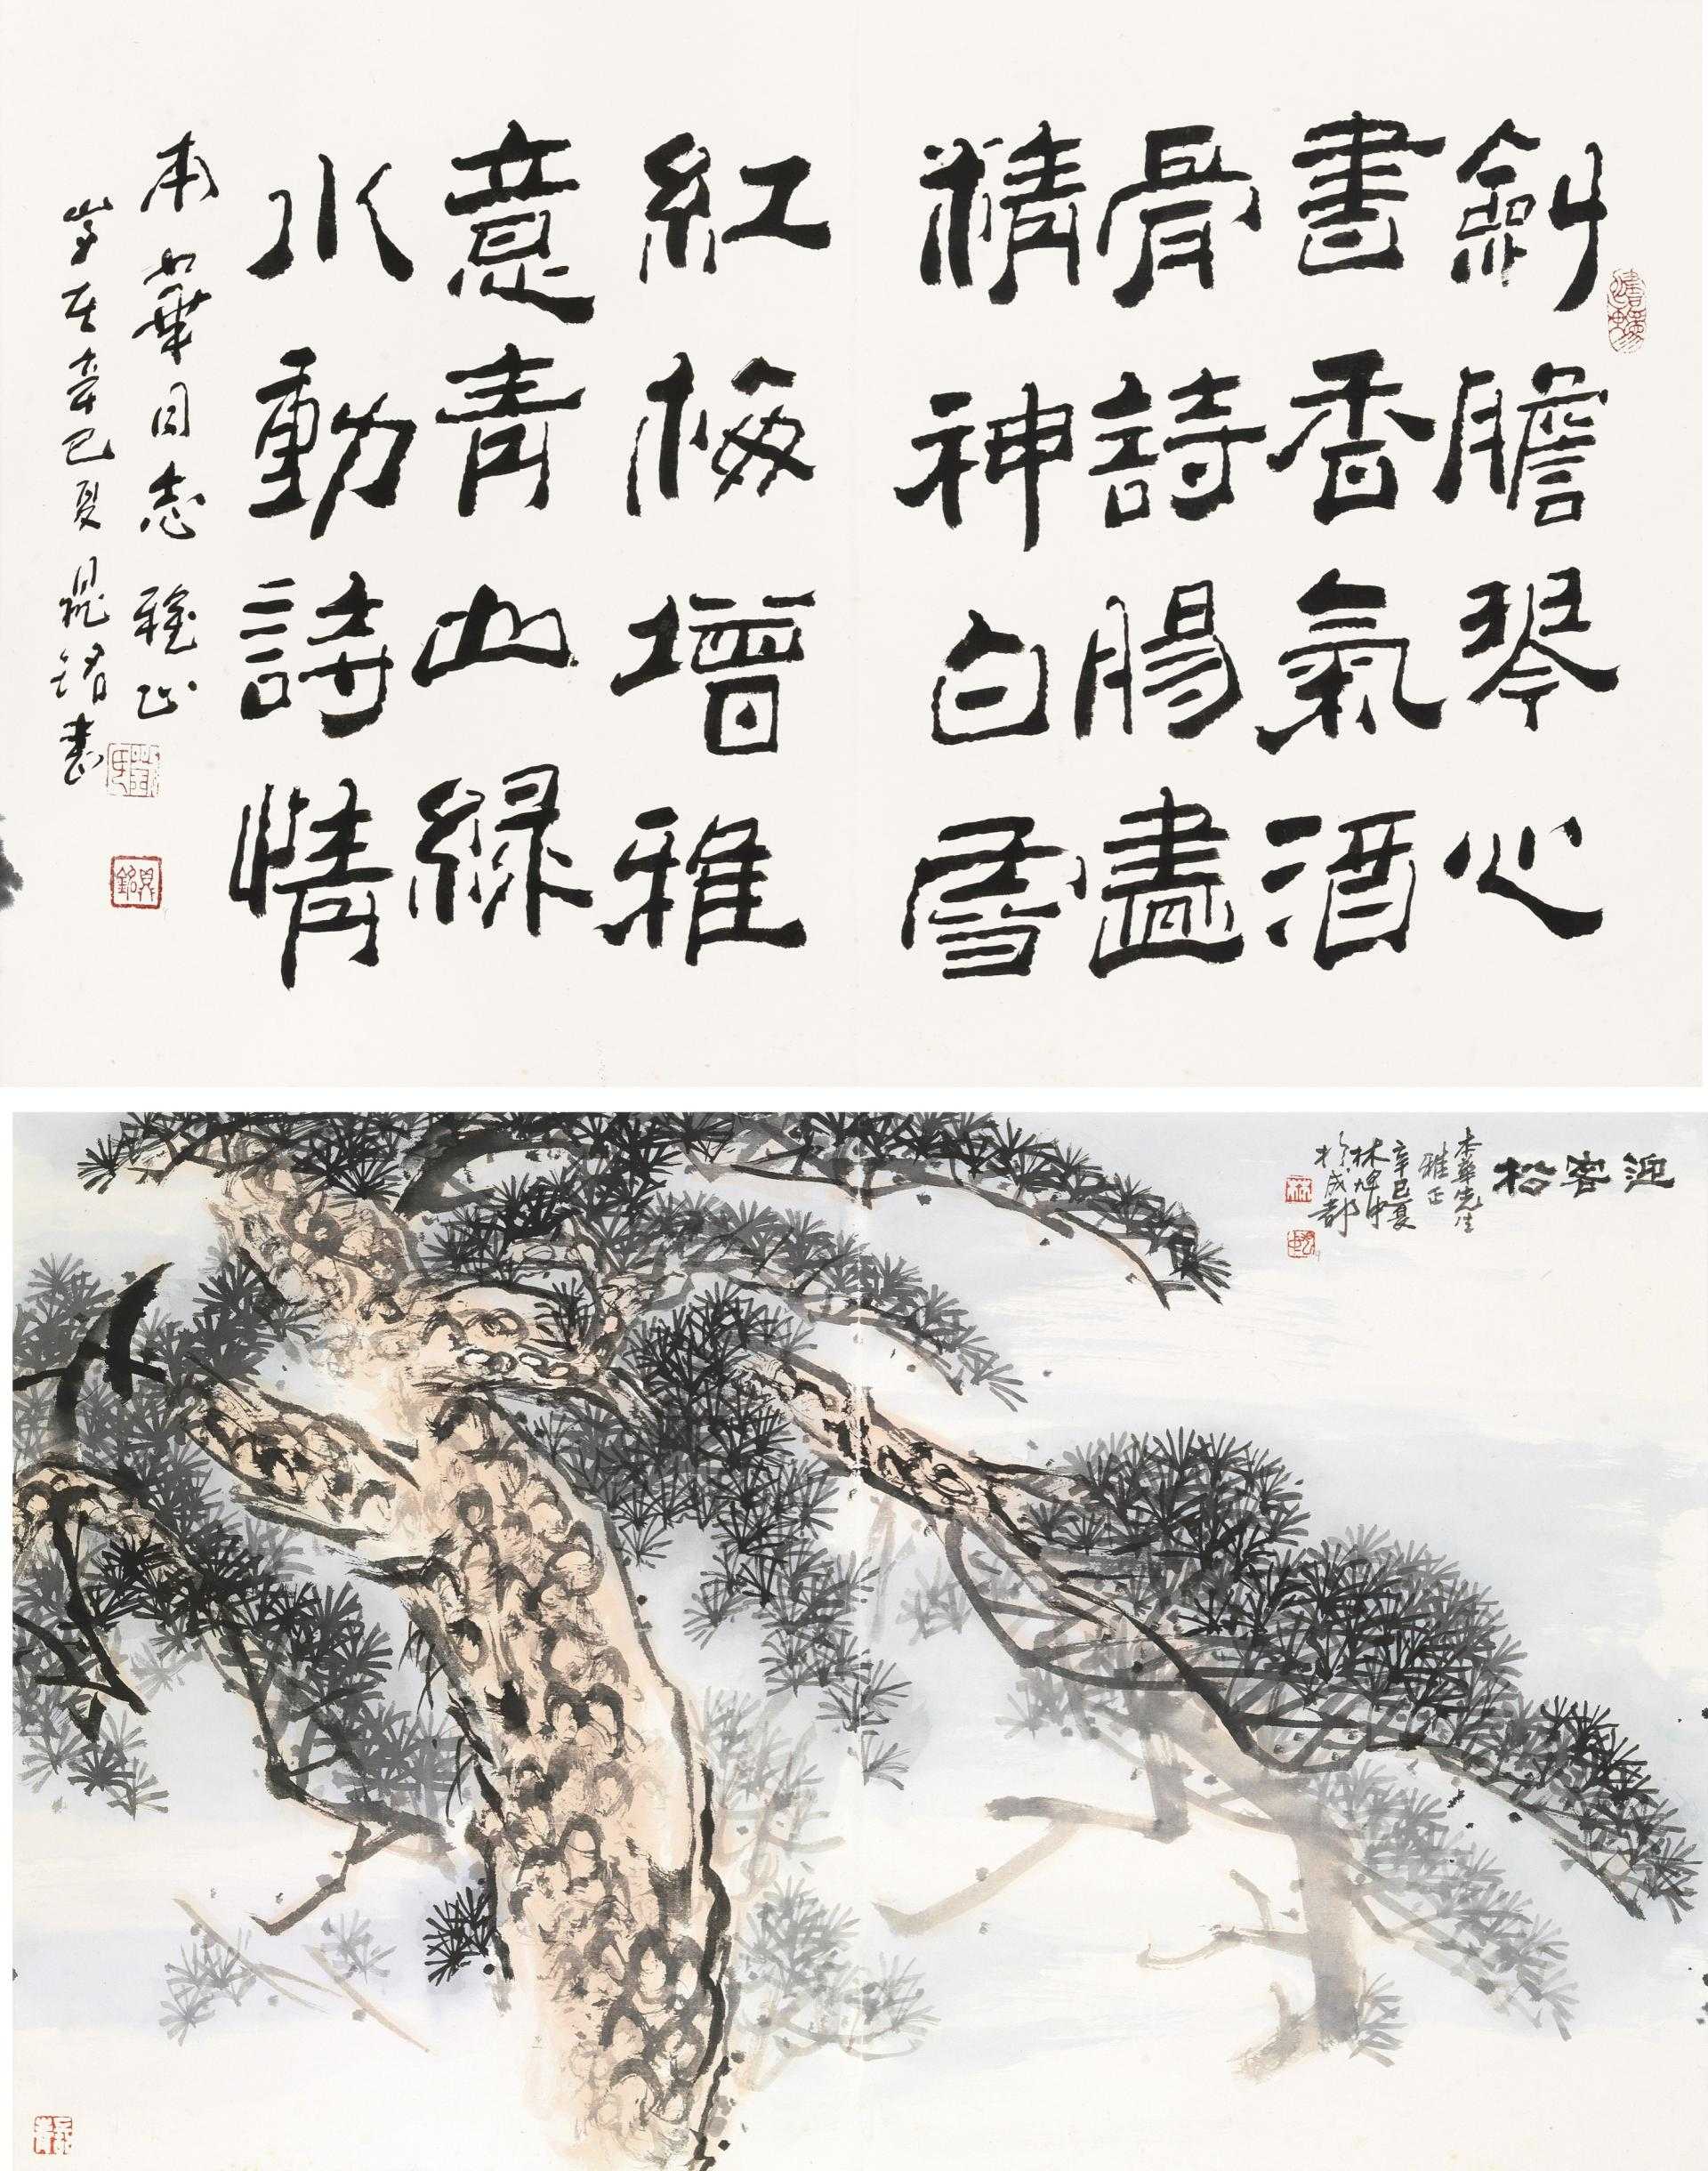 劍膽琴心
書香氣酒
骨詩腸盡
精神白雪
紅梅增雅
意青山綠
水動詩情
本華同志雅正
歲在辛巳夏晁銘書
迎客松
本華先生
雅正
辛巳夏
林
於成都